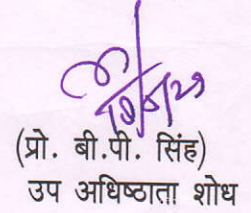 (प्रो. बी.पी. सिंह)
उप अधिष्ठाता शोध